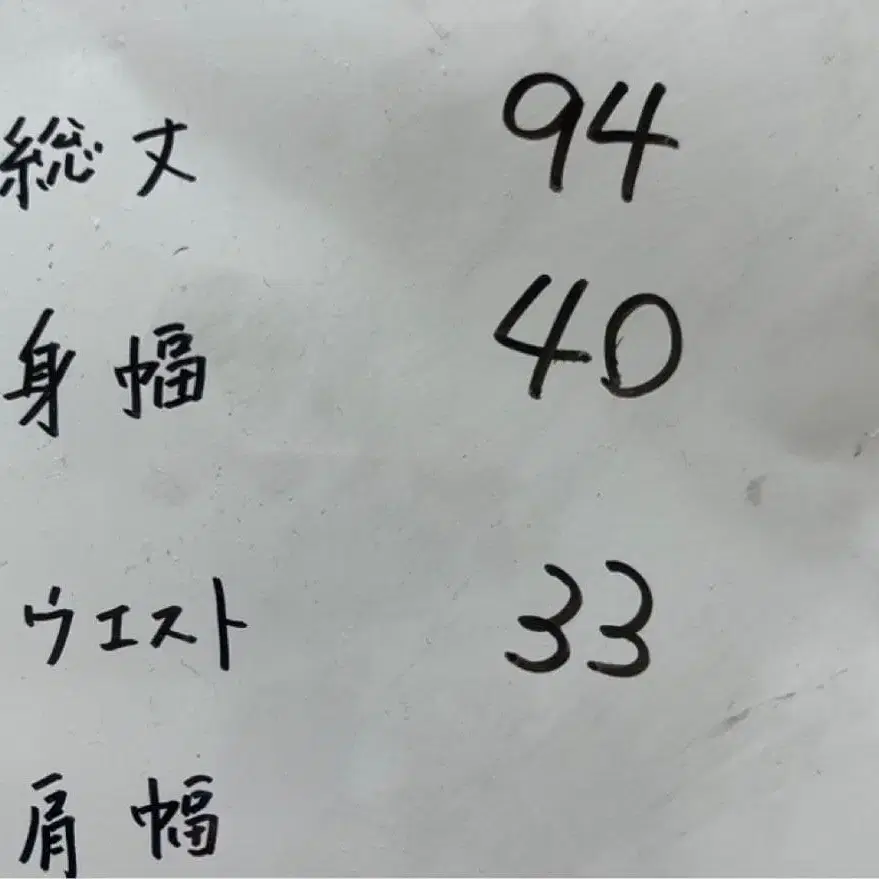 総丈 94
身幅 40
ウエスト 33
肩幅